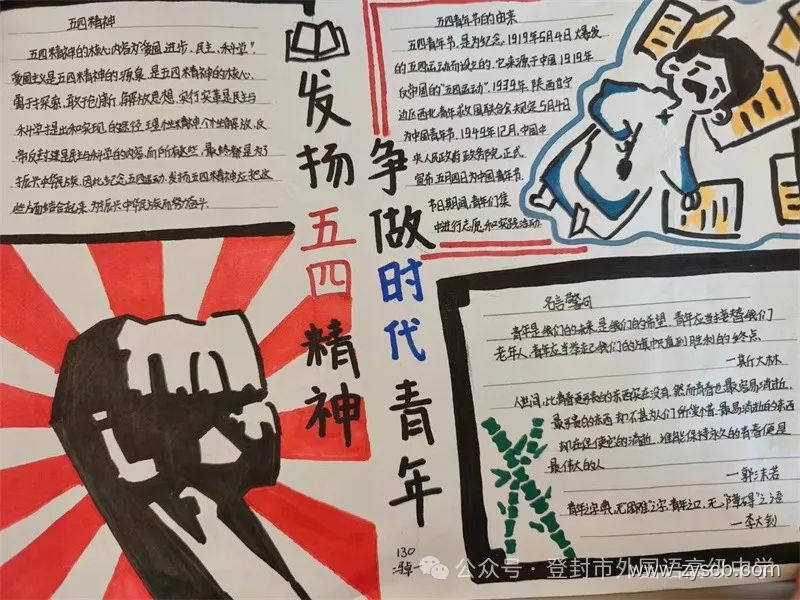 五四精神
五四精神的核心内容为"爱国、进步、民主、科学"。
爱国主义是五四精神的源泉,是五四精神的核心。
勇于探索、敢于创新、解放思想、实行变革是民主与
科学提出和实现的途径,理性精神、个性解放、反
帝反封建是民主与科学的内容。而所有这些,最终都是为了
振兴中华民族。因此,纪念五四运动,发扬五四精神应把这
些方面结合起来,为振兴中华民族而努力奋斗。
发扬五四精神
争做时代青年
五四青年节的由来
五四青年节,是为纪念1919年5月4日爆发
的五四运动而设立的,它来源于中国1919年
反帝国的"五四运动",1939年,陕西甘宁
边区西北青年救国联合会规定5月4日
为中国青年节。1949年12月,中国中
央人民政府政务院正式
宣布五月四日为中国青年节。
节日期间,青年们集
中进行志愿和实践活动.
名言警句
青年是我们的未来,是我们的希望,青年应当接替我们
老年人,青年应当举起我们的旗帜直到胜利的终点
—斯大林
人世间,比青春更可贵的东西实在没有,然而青春也最容易消逝,
最可贵的东西 却不甚为人们所爱惜,最易消逝的东西
却在促使它的消逝,谁能保持永久的青春便是
最伟大的人
—郭沫若
青年之字典,无"困难"之字,青年之口,无"障碍"之语
—李大钊
130
公众号·登封市外国语高级中学
www.zysob.com